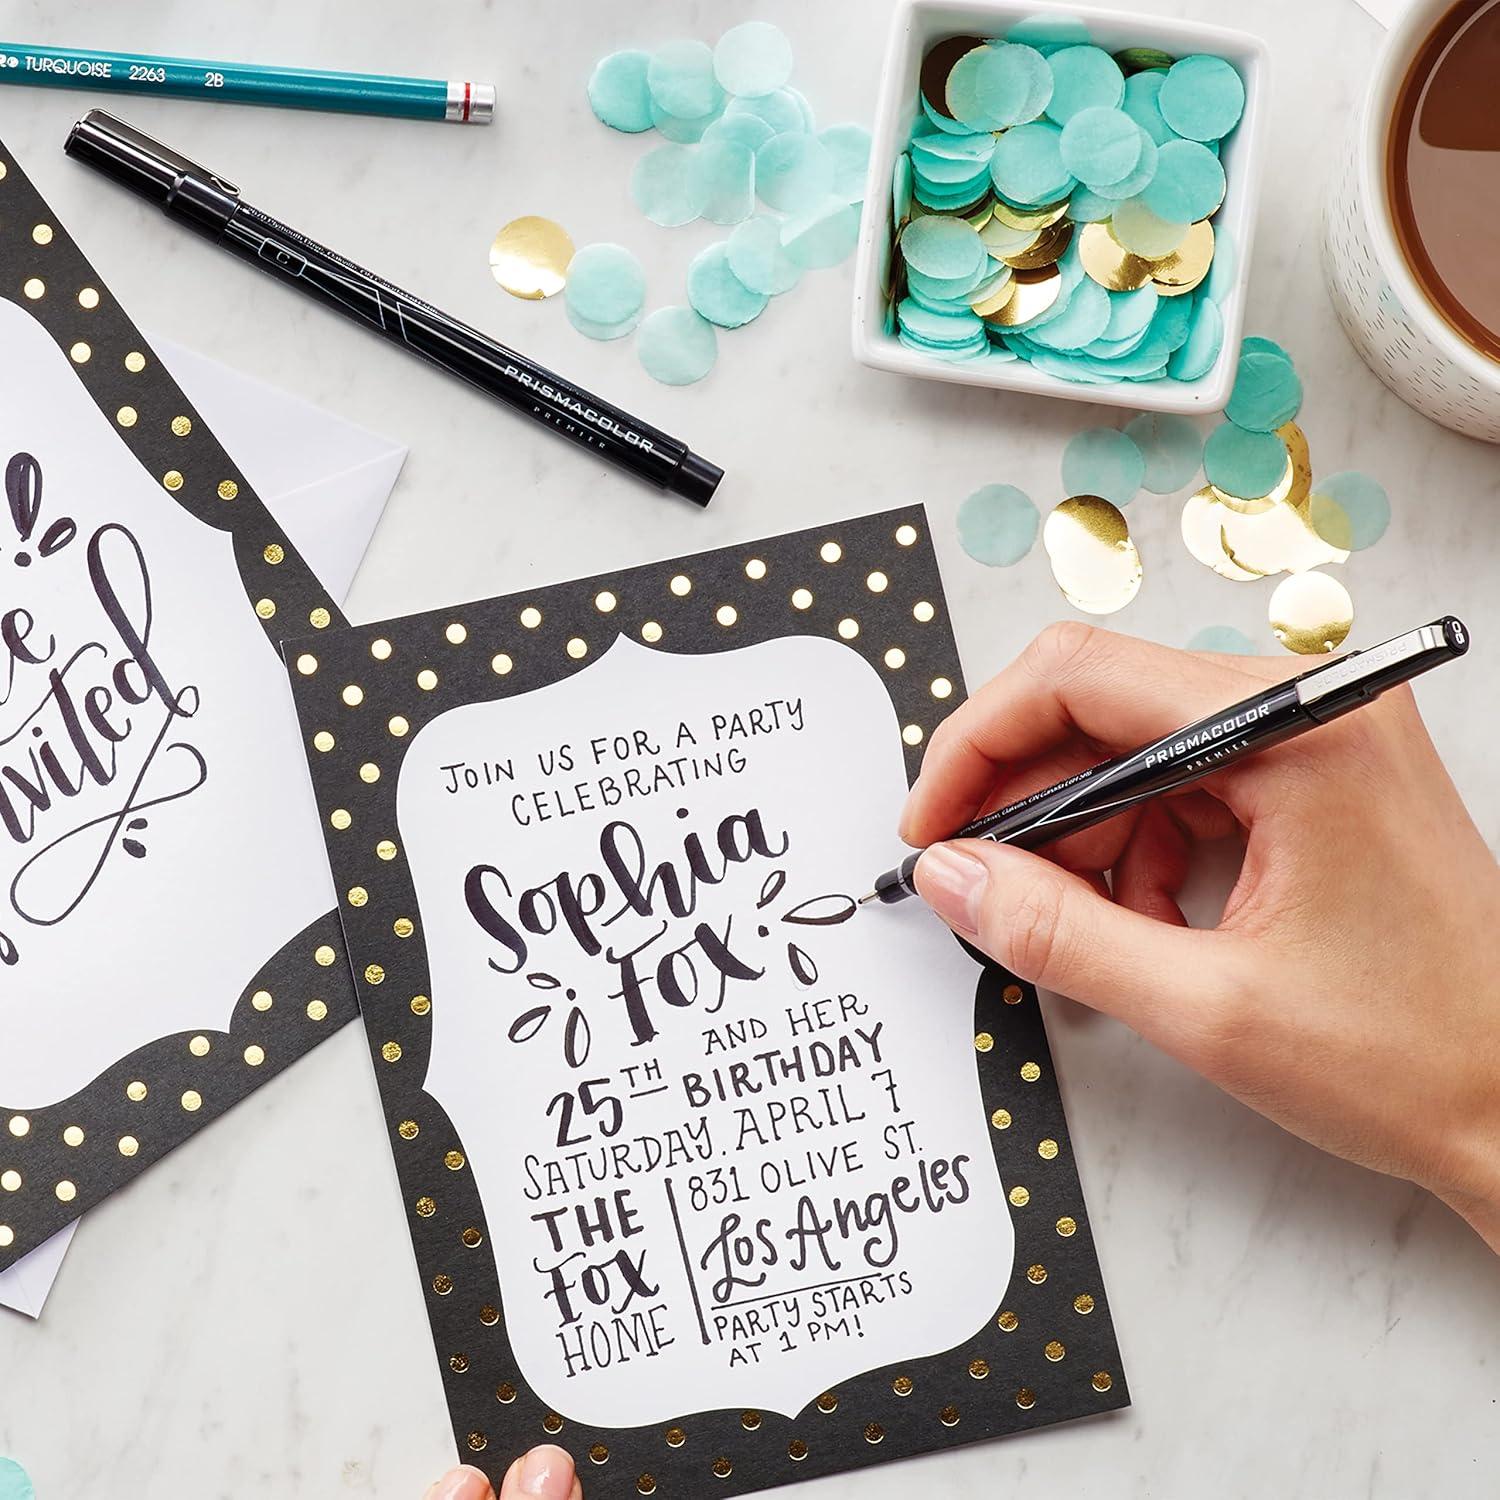 TURQUOISE 2263 2B
PRISMACOLOR
PREMIER
vited
JOIN US FOR A PARTY
CELEBRATING
Sophia
Fox
AND HER
25TH BIRTHDAY
SATURDAY, APRIL 7
THE
Fox
HOME
831 OLIVE ST.
Los Angeles
PARTY STARTS
AT 1 PM!
05
PRISMACOLOR
PREMIER